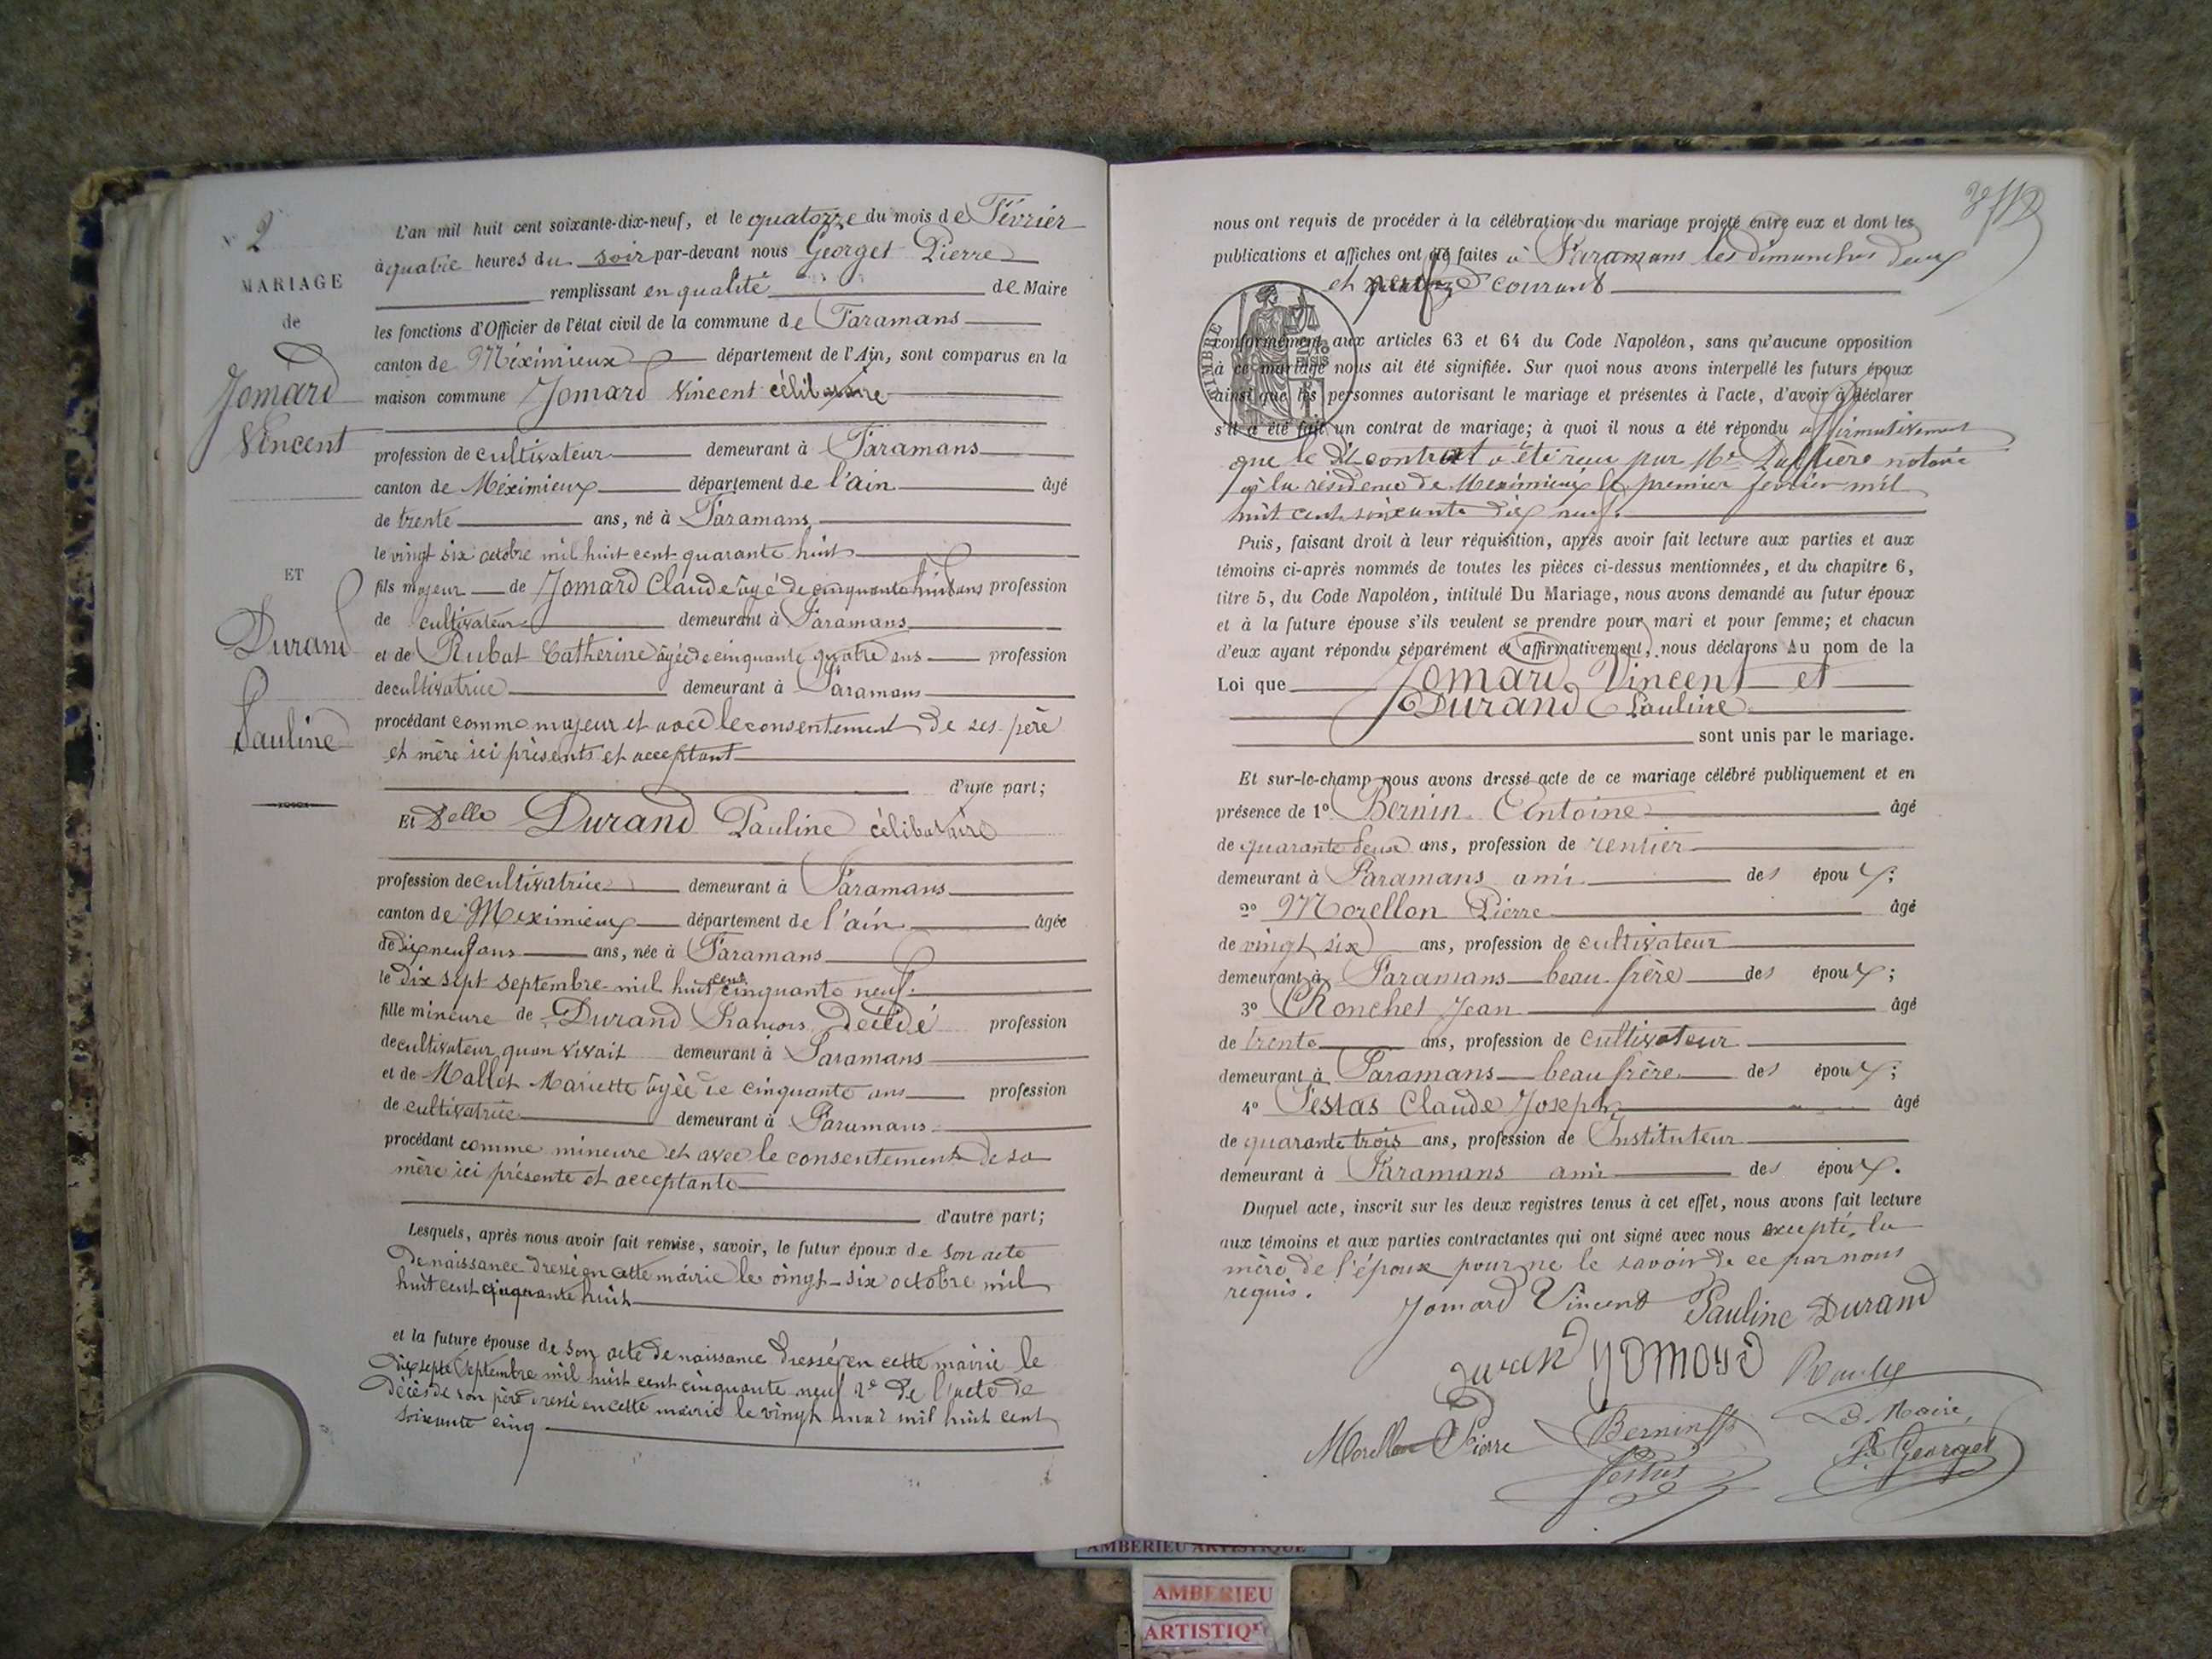 N° 2
MARIAGE
de
Jomard
Vincent
ET
Durand
Pauline
L'an mil huit cent soixante-dix-neuf, et le quatorze du mois de Février
à quatre heures du soir par-devant nous Georget Pierre
remplissant en qualité de Maire
les fonctions d'Officier de l'état civil de la commune de Faramans
canton de Méximieux département de l'Ain, sont comparus en la
maison commune Jomard Vincent célibataire
profession de cultivateur demeurant à Faramans
canton de Méximieux département de l'ain âgé
de trente ans, né à Faramans
le vingt six octobre mil huit cent quarante huit
fils majeur de Jomard Claude âgé de cinquante huit ans profession
de cultivateur demeurant à Faramans
et de Rubat Catherine âgée de cinquante quatre ans profession
de cultivatrice demeurant à Faramans
procédant comme majeur et avec le consentement de ses père
et mère ici présents et acceptant
d'une part;
Et Delle Durand Pauline célibataire
profession de cultivatrice demeurant à Faramans
canton de Meximieux département de l'ain âgée
de dix neuf ans ans, née à Faramans
le dix sept septembre mil huit cent cinquante neuf.
fille mineure de Durand François décédé profession
de cultivateur quan vivait demeurant à Faramans
et de Mallet Mariette âgée de cinquante ans profession
de cultivatrice demeurant à Faramans
procédant comme mineure et avec le consentement de sa
mère ici présente et acceptante
d'autre part;
Lesquels, après nous avoir fait remise, savoir, le futur époux de son acte
de naissance dressé en cette mairie le vingt-six octobre mil
huit cent quarante huit
et la future épouse de son acte de naissance dressé en cette mairie le
dix septe septembre mil huit cent cinquante neuf 2° de l'acte de
décès de son père dressé en cette mairie le vingt mai mil huit cent
soixante cinq
nous ont requis de procéder à la célébration du mariage projeté entre eux et dont les
publications et affiches ont été faites à Faramans les dimanches deux
et neuf courant
TIMBRE
conformément aux articles 63 et 64 du Code Napoléon, sans qu'aucune opposition
à ce mariage nous ait été signifiée. Sur quoi nous avons interpellé les futurs époux
ainsi que les personnes autorisant le mariage et présentes à l'acte, d'avoir à déclarer
s'il a été fait un contrat de mariage; à quoi il nous a été répondu affirmativement
que le dit contrat a été reçu par Me notaire
à la résidence de Meximieux le premier février mil
huit cent soixante dix neuf.
Puis, faisant droit à leur réquisition, après avoir fait lecture aux parties et aux
témoins ci-après nommés de toutes les pièces ci-dessus mentionnées, et du chapitre 6,
titre 5, du Code Napoléon, intitulé Du Mariage, nous avons demandé au futur époux
et à la future épouse s'ils veulent se prendre pour mari et pour femme; et chacun
d'eux ayant répondu séparément et affirmativement, nous déclarons Au nom de la
Loi que Jomard Vincent et
Durand Pauline
sont unis par le mariage.
Et sur-le-champ nous avons dressé acte de ce mariage célébré publiquement et en
présence de 1° Bernin Antoine âgé
de quarante deux ans, profession de rentier
demeurant à Faramans ami des époux;
2° Morellon Pierre âgé
de vingt six ans, profession de cultivateur
demeurant à Faramans beau frère des époux;
3° Ronchet Jean âgé
de trente ans, profession de cultivateur
demeurant à Faramans beau frère des époux;
4° Pestas Claude Joseph âgé
de quarante trois ans, profession de Instituteur
demeurant à Faramans ami des époux.
Duquel acte, inscrit sur les deux registres tenus à cet effet, nous avons fait lecture
aux témoins et aux parties contractantes qui ont signé avec nous excepté la
mère de l'époux pour ne le savoir de ce par nous
requis.
Jomard Vincent Pauline Durand
Jomard
Morellon Pierre Bernin Le Maire,
Pestas P. Georget
AMBERIEU ARTISTIQUE
AMBERIEU
ARTISTIQ